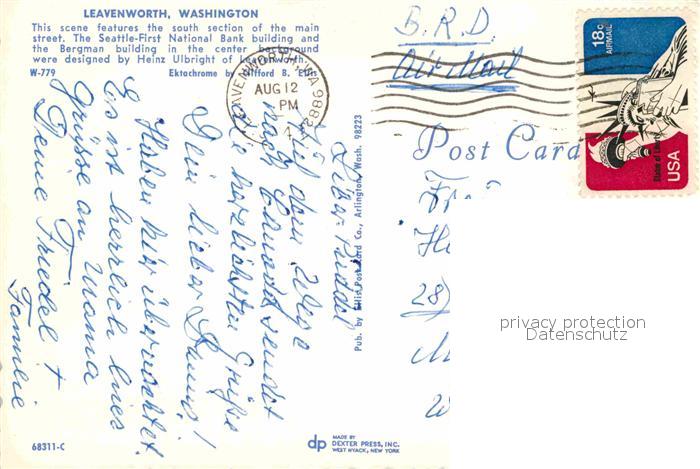 LEAVENWORTH, WASHINGTON
This scene features the south section of the main
street. The Seattle-First National Bank building and
the Bergman building in the center background
were designed by Heinz Ulbright of Leavenworth.
W-779 Ektachrome by Clifford B. Ellis
LEAVENWORTH, WA 98826
AUG 12
PM
B.R.D.
Air Mail
18c
AIRMAIL
Statue of Liberty
USA
Post Card
Auf dem Wege
nach Canada sendet
die herzlichsten Grüße
Dein lieber
Haben hier übernachtet.
Es ist herrlich hier
Grüsse an Mama
Deine Friedel +
Pub. by Ellis Post Card Co., Arlington, Wash. 98223
28)
privacy protection
Datenschutz
68311-C
dp MADE BY
DEXTER PRESS, INC.
WEST NYACK, NEW YORK